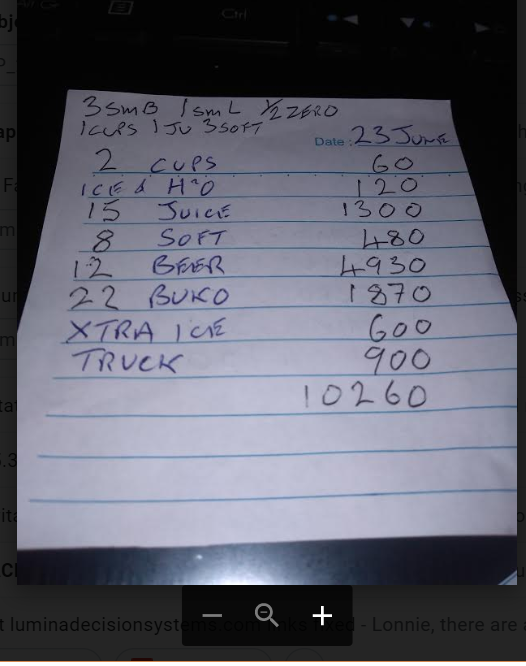 Ctrl
3 SMB 1 SML 1/2 ZERO
1 CUPS 1 JU 3 SOFT
Date: 23 JUNE
2 CUPS 60
ICE & H2O 120
15 JUICE 1300
8 SOFT 480
12 BEER 4930
22 BUKO 1870
XTRA ICE 600
TRUCK 900
10260
t luminadecisionsystems.com links - Lonnie, there are a